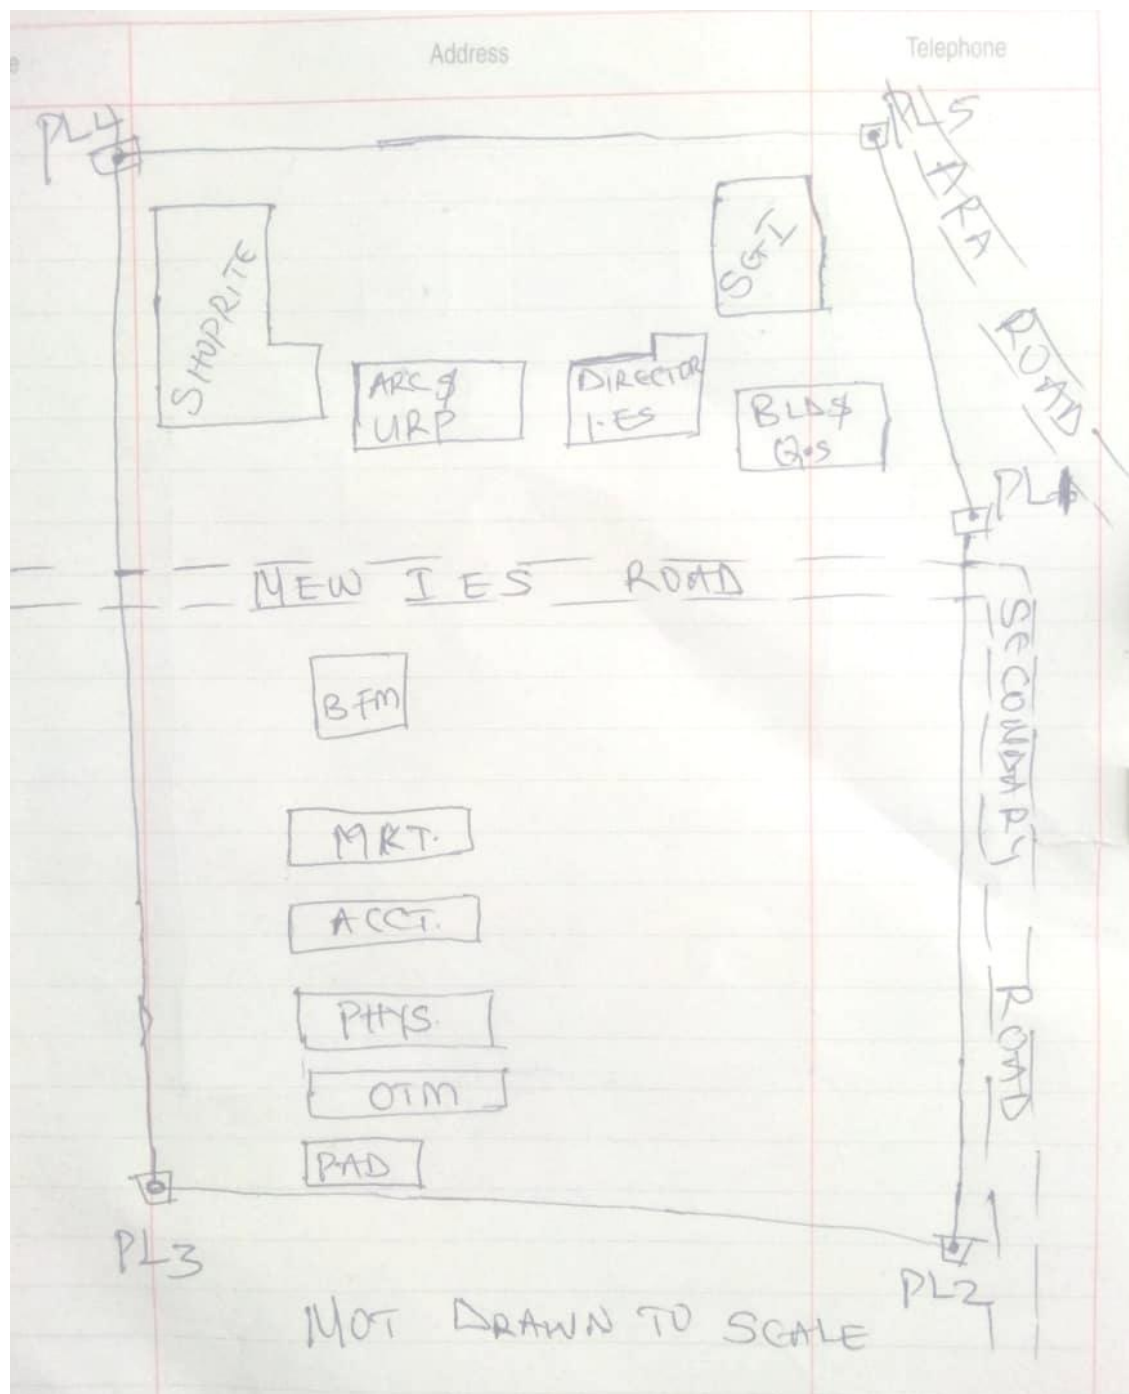 e
Address
Telephone
PL4
PL5
ARA
ROAD
SHOPRITE
SGI
ARC $
URP
DIRECTOR
I.ES
BLD $
Q.S
PL1
NEW IES ROAD
SECONDARY
ROAD
BFM
MKT.
ACCT.
PHYS.
OTM
PAD
PL3
PL2
NOT DRAWN TO SCALE